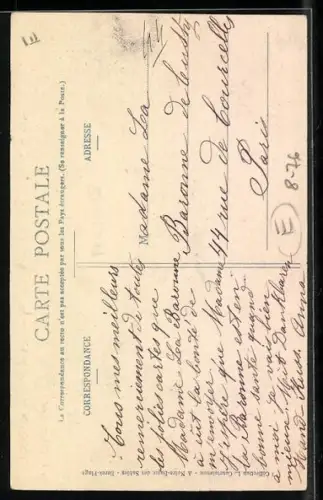 CARTE POSTALE
La Correspondance au recto n'est pas acceptée par tous les Pays étrangers. (Se renseigner à la Poste.)
CORRESPONDANCE
ADRESSE
Tous mes meilleurs
remerciement de toutes
les jolies cartes que
Madame Lea Baronne
à eut la bonté de
m'envoyer
J'espère que Madame
la Baronne est en
bonne santé quand
à moi je vai bien
mieux. Mit Dankbaren
Hand Kuss. Anna
Madame Lea
Baronne de
44 rue de Courcelles
Paris
E
8-76
Collection L. - A Notre-Dame des Sables -